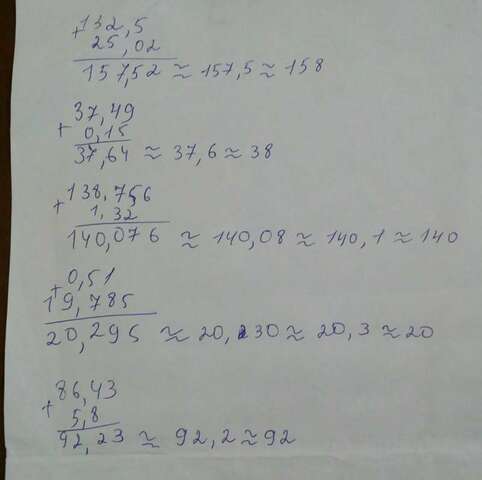 +132,5
25,02
157,52 ≈ 157,5 ≈ 158
37,49
+ 0,15
37,64 ≈ 37,6 ≈ 38
138,756
+ 1,32
140,076 ≈ 140,08 ≈ 140,1 ≈ 140
+0,51
19,785
20,295 ≈ 20,30 ≈ 20,3 ≈ 20
86,43
+ 5,8
92,23 ≈ 92,2 ≈ 92